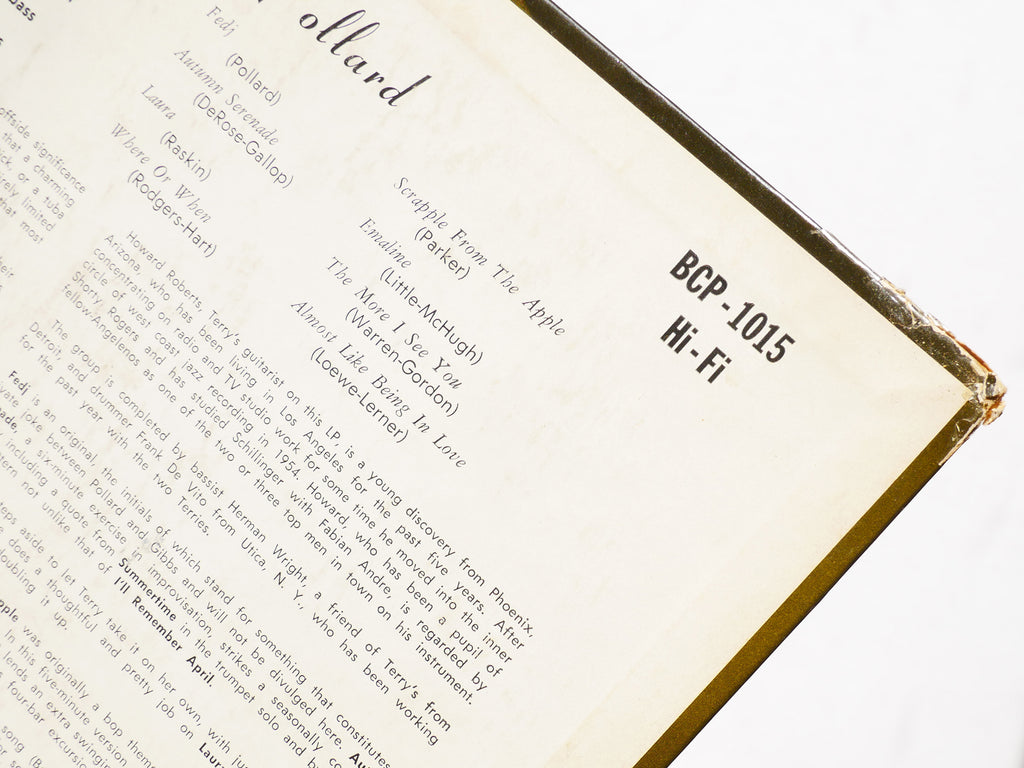 ollard
Fedj
(Pollard)
Autumn Serenade
(DeRose-Gallop)
Laura
(Raskin)
Where Or When
(Rodgers-Hart)
Scrapple From The Apple
(Parker)
Emaline
(Little-McHugh)
The More I See You
(Warren-Gordon)
Almost Like Being In Love
(Loewe-Lerner)
BCP-1015
Hi-Fi
offside significance
that a charming
or a tuba
limited
that most
Howard Roberts, Terry's guitarist on this LP, is a young discovery from Phoenix,
Arizona, who has been living in Los Angeles for the past five years. After
concentrating on radio and TV studio work for some time he moved into the inner
circle of west coast jazz recording in 1954. Howard, who has been a pupil of
Shorty Rogers and has studied Schillinger with Fabian Andre, is regarded by
fellow-Angelenos as one of the two or three top men in town on his instrument.
The group is completed by bassist Herman Wright, a friend of Terry's from
Detroit, and drummer Frank De Vito from Utica, N. Y., who has been working
for the past year with the two Terries.
Fedj is an original, the initials of which stand for something that constitutes
joke between Pollard and Gibbs and will not be divulged here.
a six-minute exercise in improvisation, strikes a seasonally
including a quote from Summertime in the trumpet solo and
not unlike that of I'll Remember April.
aside to let Terry take it on her own, with
does a thoughtful and pretty job on
doubling it up.
was originally a bop theme
In this five-minute version
lends an extra swinging
four-bar
song